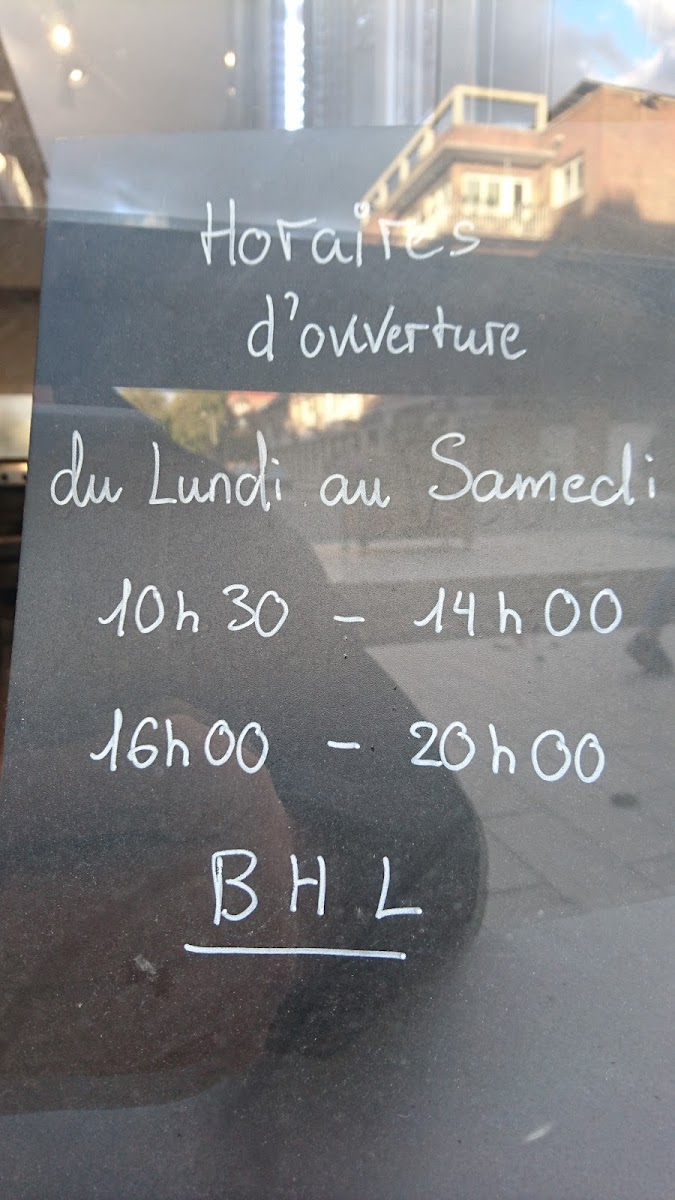 Horaires
d'ouverture
du Lundi au Samedi
10h30 - 14h00
16h00 - 20h00
BHL